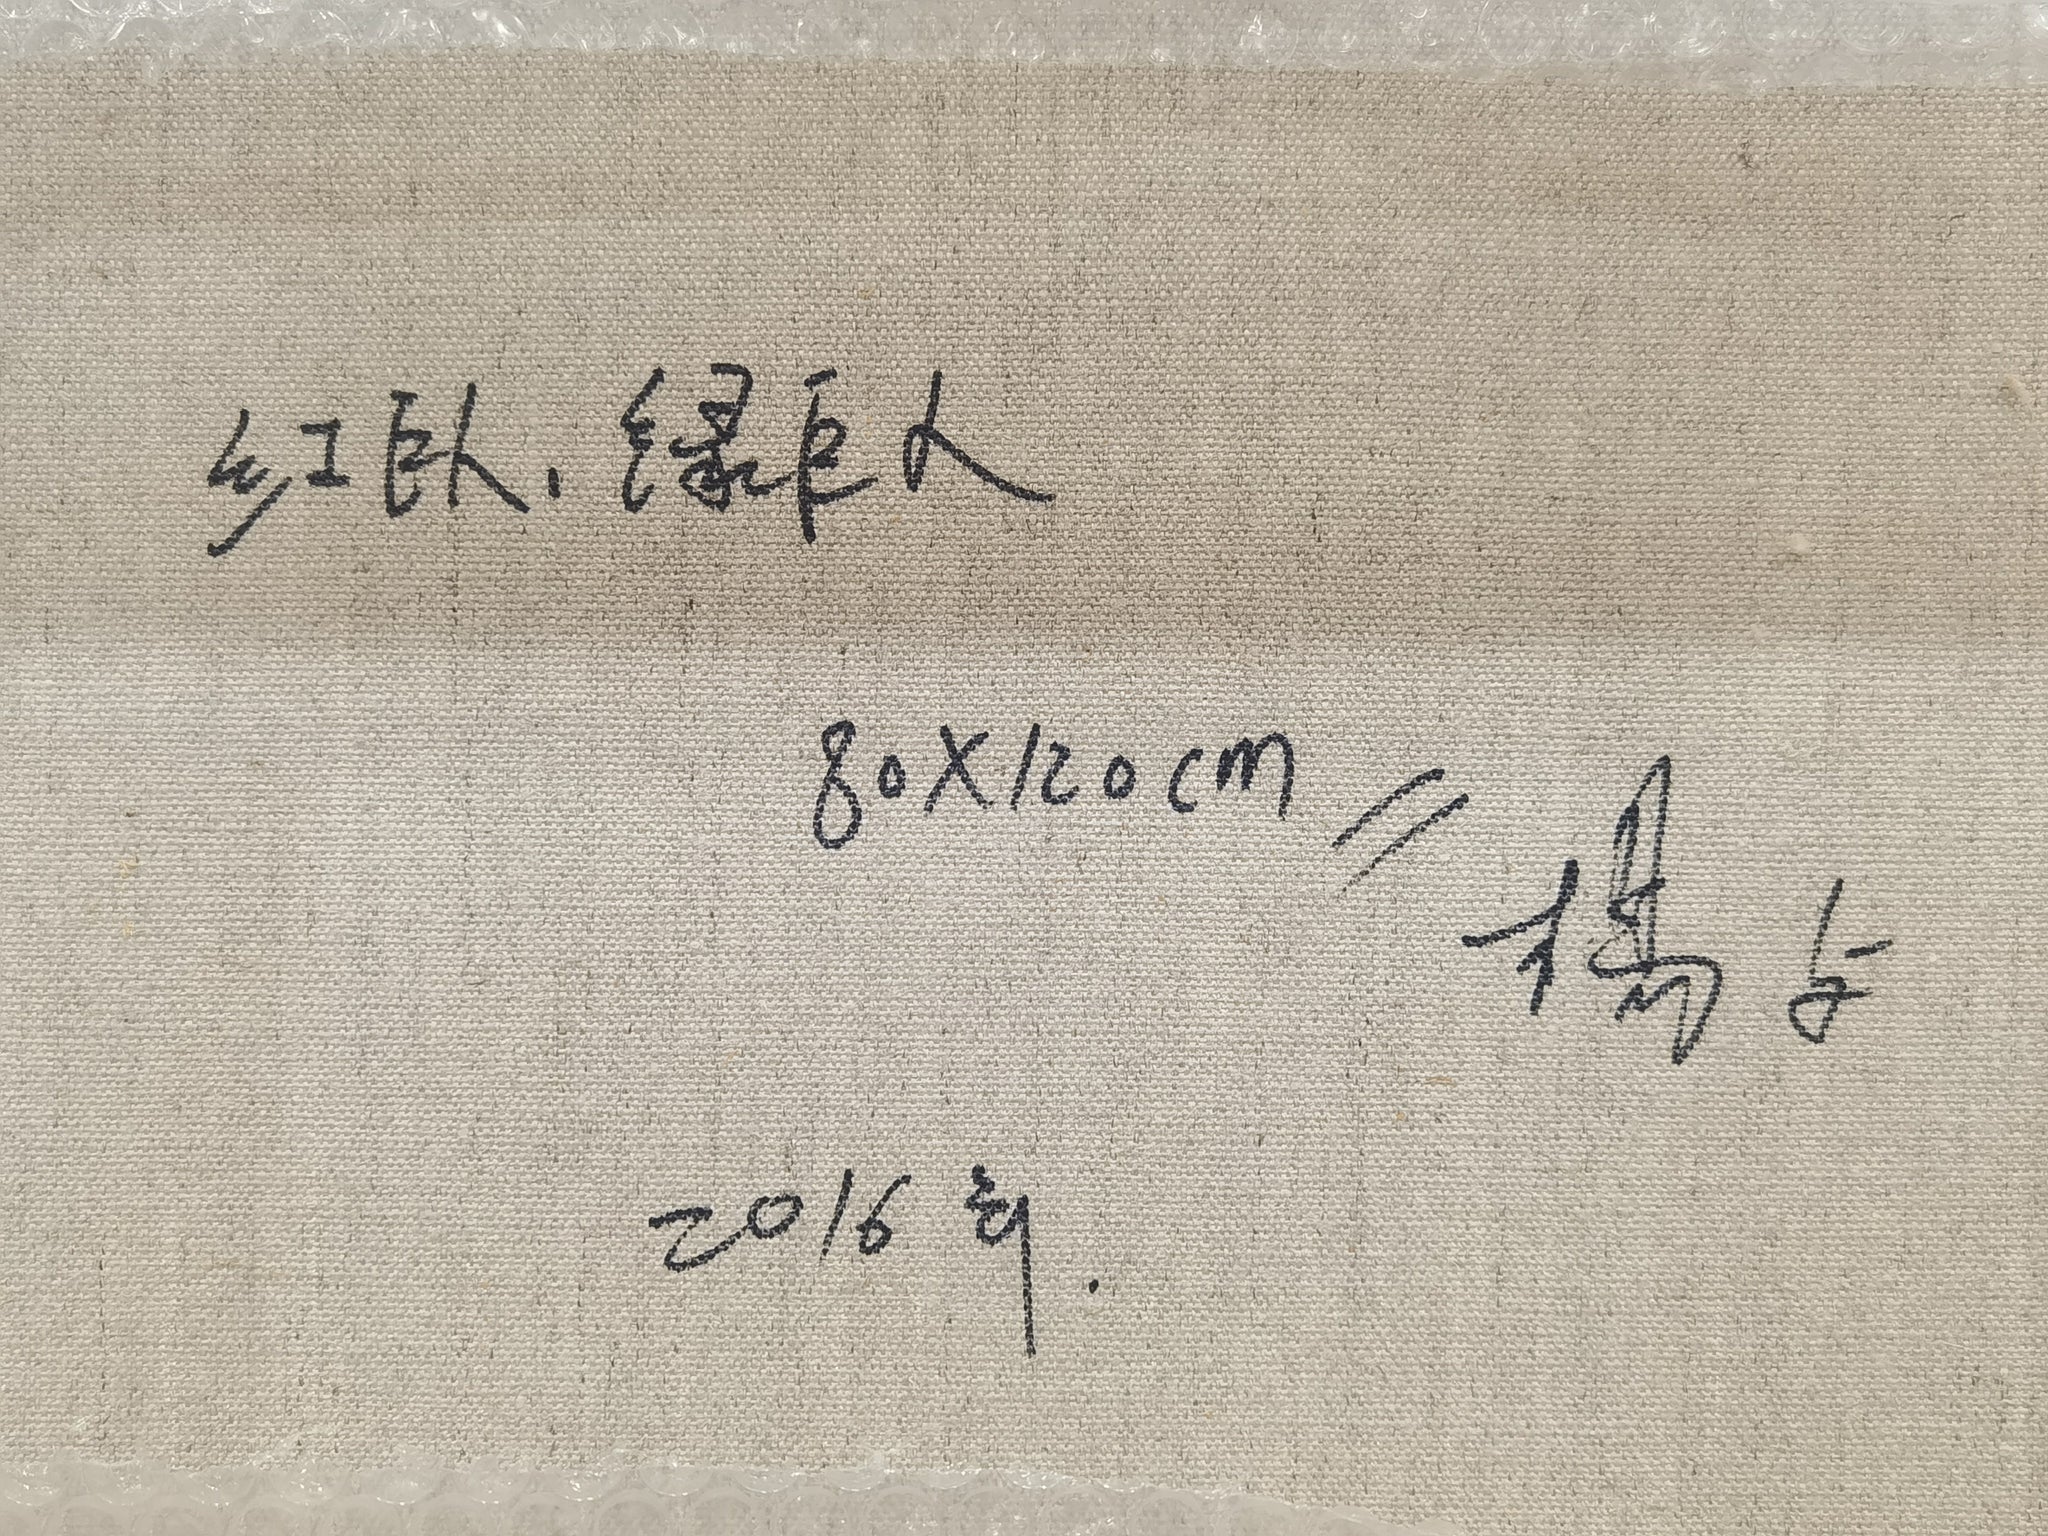 红卧,绿巨人
80X120cm
杨
2016 年.